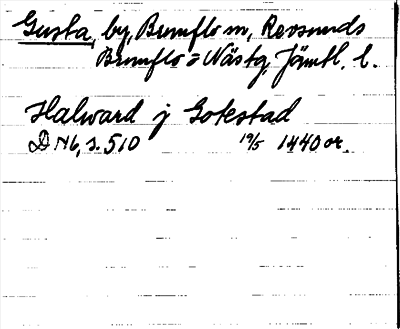 Gusta, by, Brunflo sn, Revsunds
Brunflo o Näskg, Jämtl. l.
Halward j Gotestad
DN 16, s. 510 19/5 1440 or.